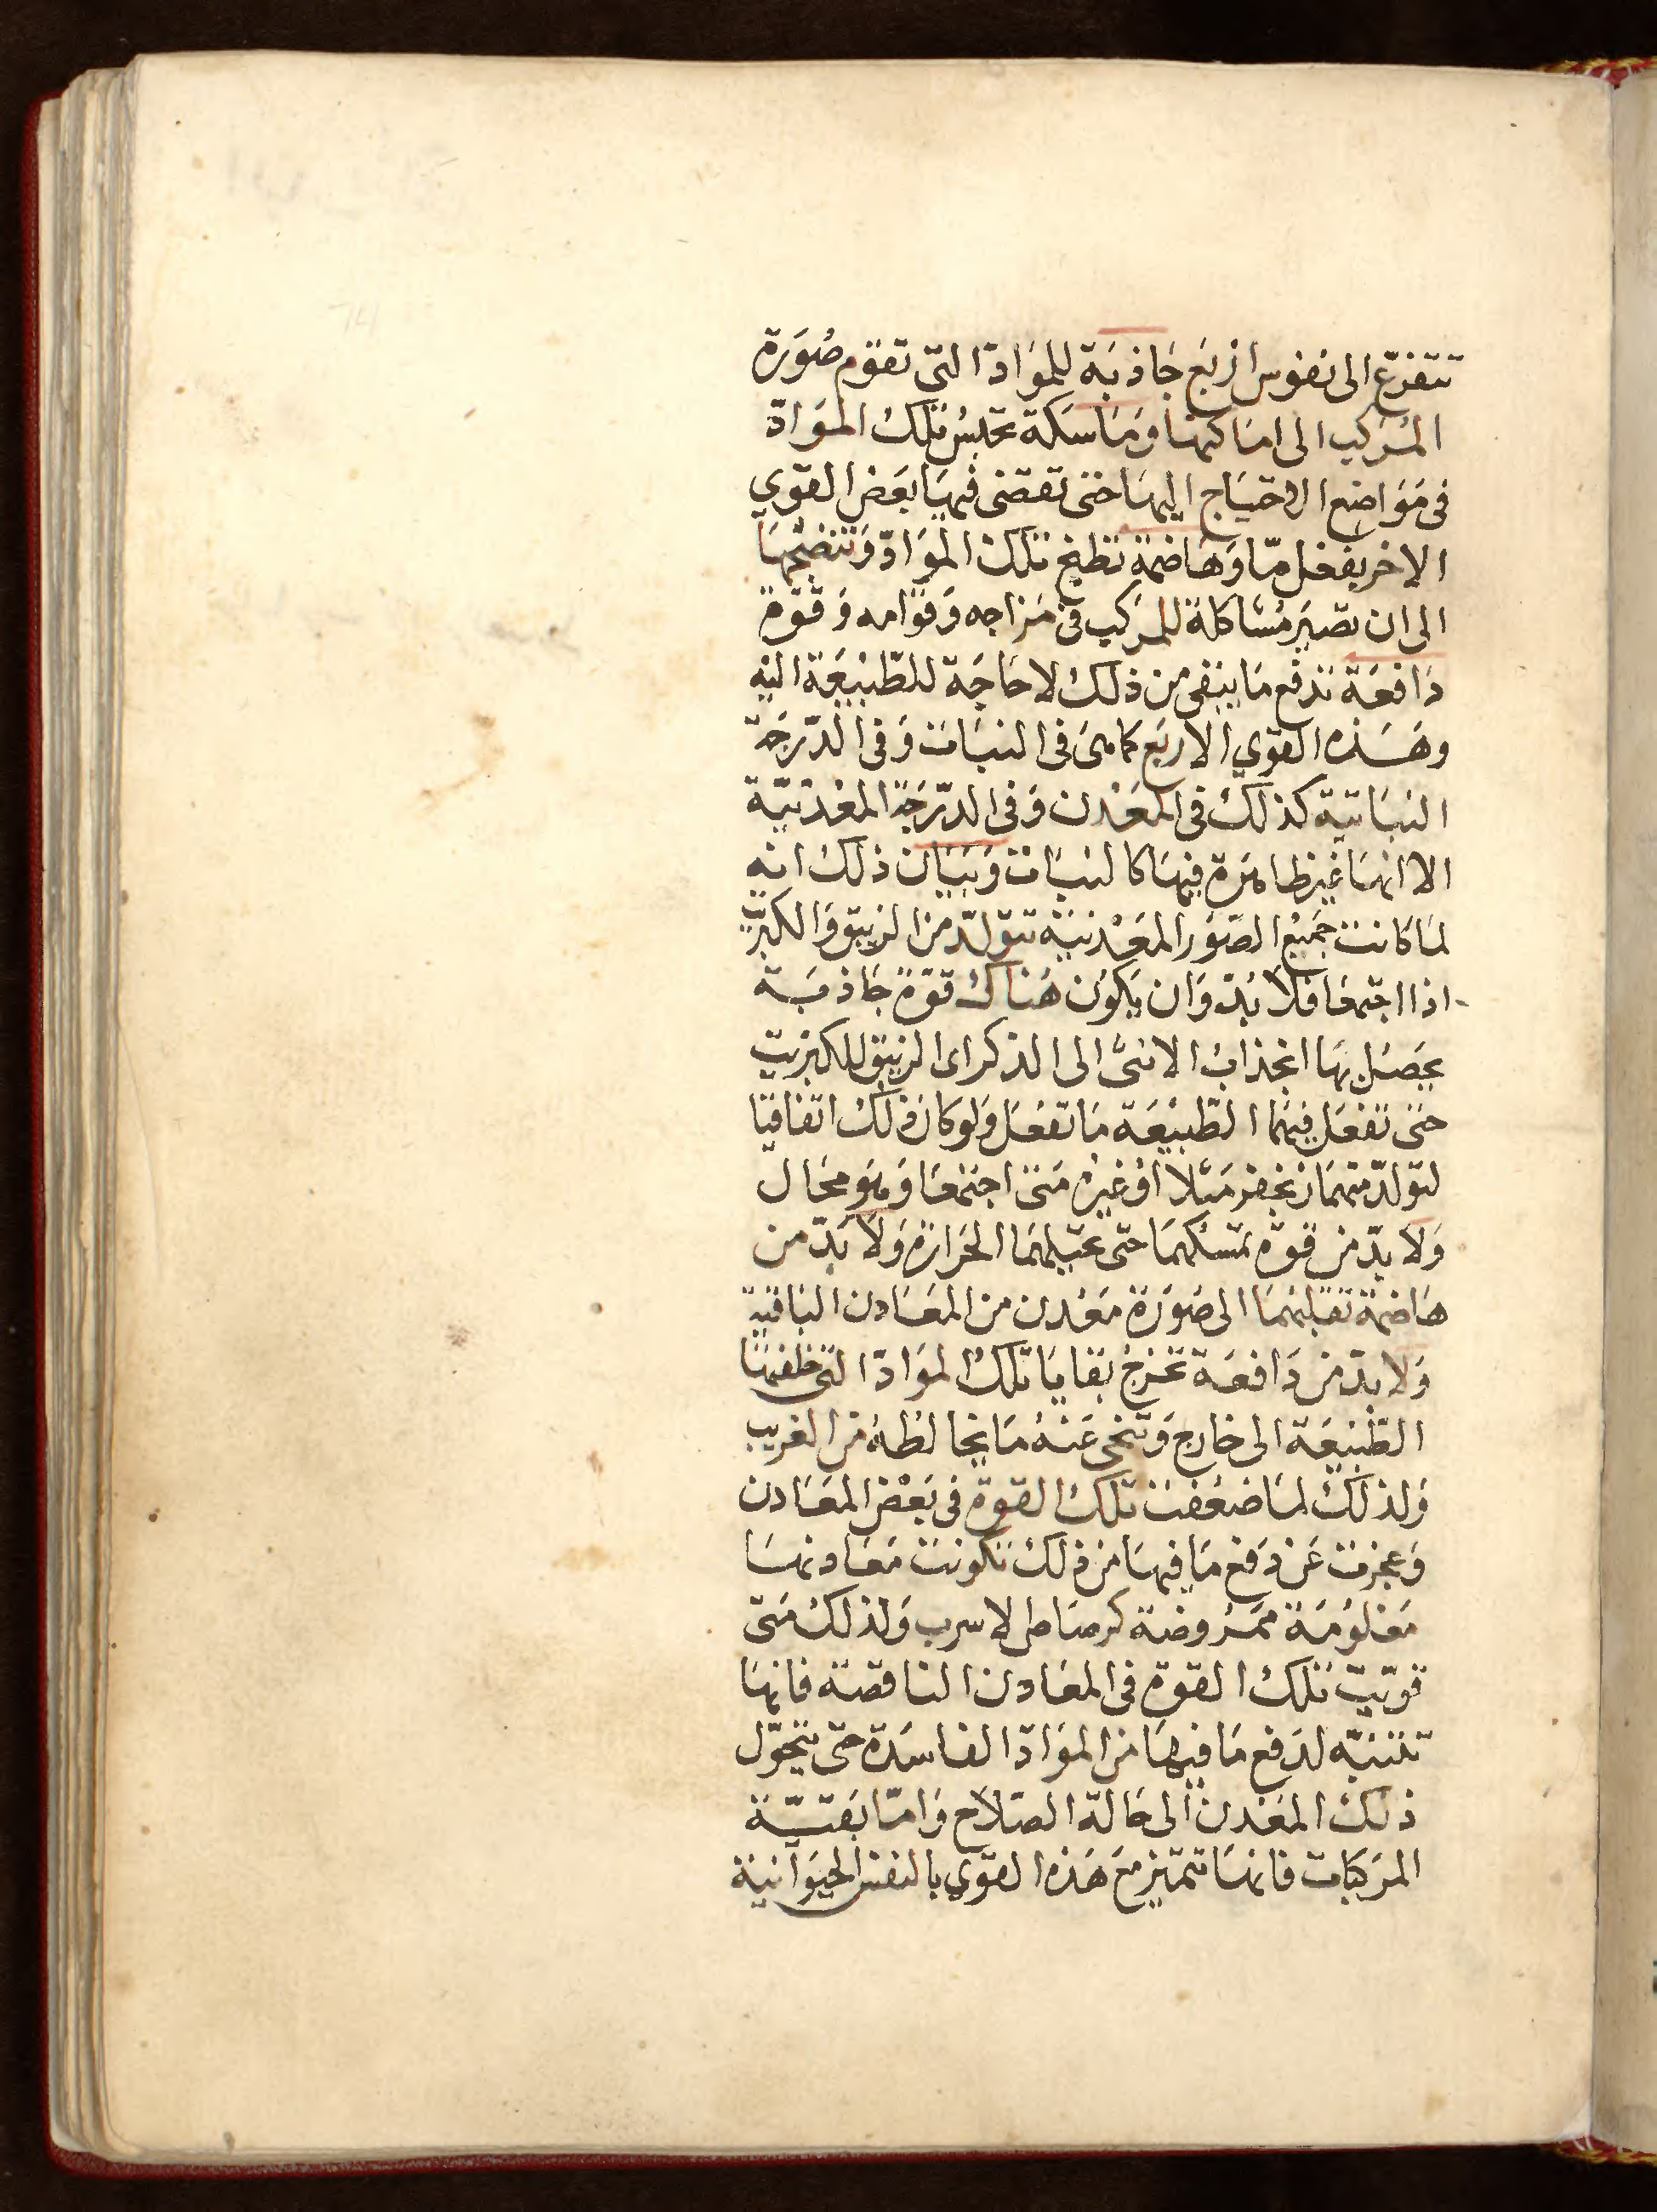 تتفرّع الى نفوس اربَع جَاذبَة للموَادّ التى تقوّم صُورَة
المُركب الى امَاكنها وَمَاسَكة تحبسُ تلكَ الموَادّ
فى مَوَاضِع الاحتيَاج اليهَا حتى تقضى فيهَا بَعَض القوي
الاخر بفعل مّا وَهَاضمة تطبخ تلك الموَادّ وَتنضجهَا
الى ان تصَير مُشاكلة للمركب فى مَزاجه وَقوَامه وَقوّة
دَافعَة تدفع مَا يبقى من ذلك لا حَاجَة للطّبيعَة اليه
وهَذه القوي الاربَع كما هىَ فى النبَات وَفى الدّرجَة
النبَاتية كذلك فى المعَدن وَفى الدّرَجة المعْدنيّة
الا انهَا غير ظاهرَة فيهَا كالنبَات وَبَيَان ذلك انه
لمَا كانت جَميْع الصّوَر المعَدْنيّة تتوَلدّ من الزيبق وَالكبريت
اذا اجتمعَا فلا بُدّ وَان يَكوُن هُناكَ قوّة جَاذبَة
يحصَل بهَا انجذابُ الانثى الى الذكر اى الزيبق للكبريت
حتى تفعَل فيهَما الطّبيْعَة مَا تفعَل وَلو كان ذلك اتفاقيّا
لتولدّ منهمَا زنجفر مَثلاً اوْ غيره مَتى اجتمعَا وَهوَ محَال
وَلا بدّ من قوّة تمسكهمَا حتى تحيلهمَا الحَرارَة وَلا بَدّ من
هَاضمة تقلبهمَا الى صُورَة مَعْدن من المعَادن البَاقية
وَلا بدّ من دَافعَة تخرجُ بقايَا تلكَ الموَادّ التى خلفهَا
الطّبيْعَة الى خارج وَتنحى عَنهُ مَا يخالطهُ من الغريب
وَلذلكَ لمَا ضعُفت تلكَ القوة فى بَعْض المعَادن
وَعجزت عَن دَفع مَا فيهَا من ذلك تكونت مَعَادنهَا
مَعْلوُمَة ممَرُوضة كرصَاص الاسرب وَلذلكَ مَتى
قويت تلك القوة فى المعَادن الناقصَة فانهَا
تتنبّه لدَفع مَا فيهَا من الموَادّ الفاسَدة حتى يتحوّل
ذلك المعَدن الى حَالة الصَلاح وَامّا بَقيّة
المركبَات فانهَا تتميّز مَع هَذه القوي بالنفس الحيوَانية